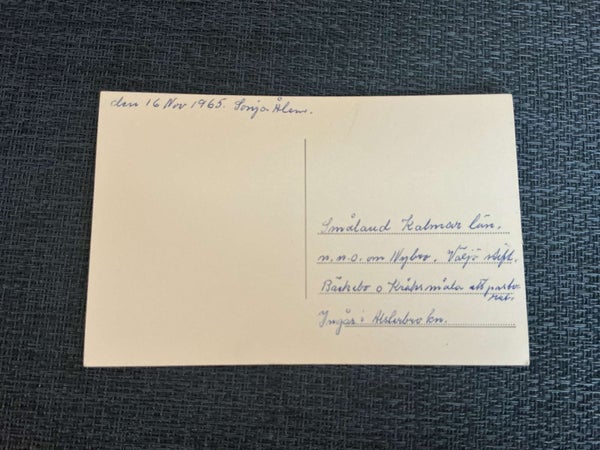 den 16 Nov 1965. Sonja Ålem.
Småland Kalmar län.
n.n.o. om Nybro. Växjö stift.
Bäckebo o Kråksmåla ett pasto-
rat.
Ingår i Alsterbro kn.